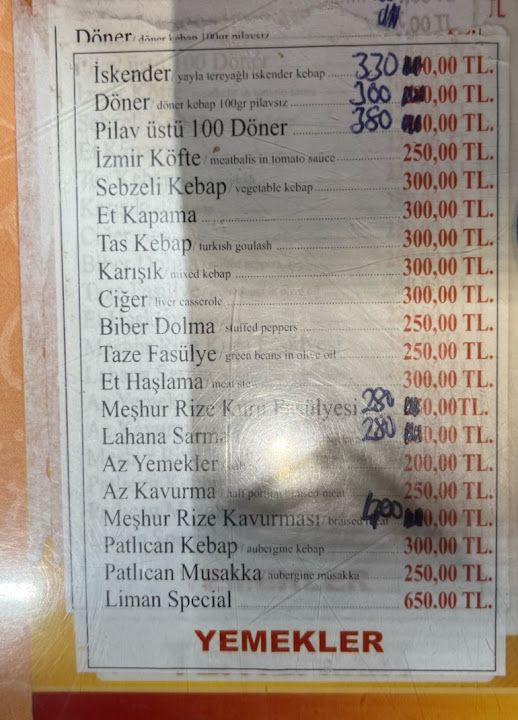 Döner/ döner kebap 100gr pilavsız
İskender yayla tereyağlı iskender kebap 330 0,00 TL.
Döner döner kebap 100gr pilavsız 300 0,00 TL.
Pilav üstü 100 Döner 380 0,00 TL.
İzmir Köfte / meatballs in tomato sauce 250,00 TL.
Sebzeli Kebap / vegetable kebap 300,00 TL.
Et Kapama 300,00 TL.
Tas Kebap / turkish goulash 300,00 TL.
Karışık / mixed kebap 300,00 TL.
Ciğer / liver casserole 300,00 TL.
Biber Dolma / stuffed peppers 250,00 TL.
Taze Fasülye / green beans in olive oil 250,00 TL.
Et Haşlama / meat stew 300,00 TL.
Meşhur Rize Kuru Fasülyesi 280 0,00TL.
Lahana Sarma 280 0,00 TL.
Az Yemekler 200,00 TL.
Az Kavurma / half portion braised meat 250,00 TL.
Meşhur Rize Kavurması / braised meat 400 0,00 TL.
Patlıcan Kebap / aubergine kebap 300,00 TL.
Patlıcan Musakka / aubergine musakka 250,00 TL.
Liman Special 650.00 TL.
YEMEKLER